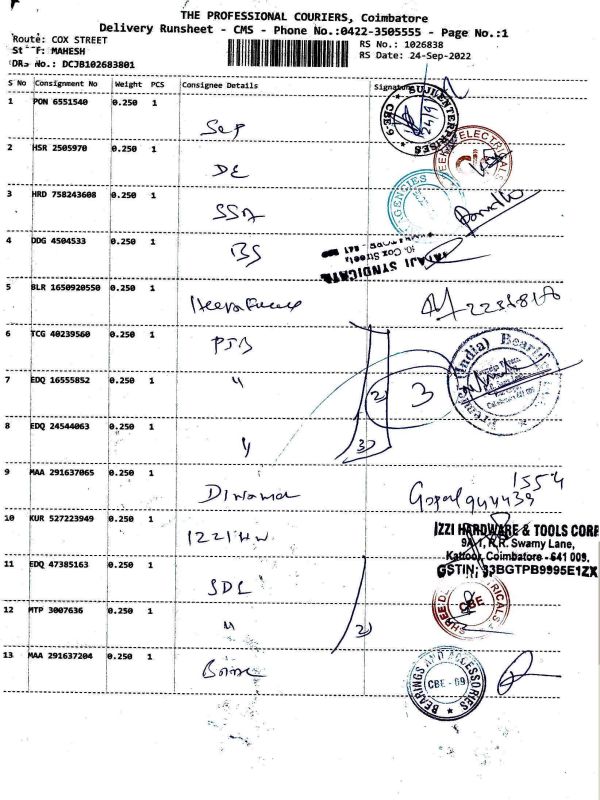 THE PROFESSIONAL COURIERS, Coimbatore
Delivery Runsheet - CMS - Phone No.:0422-3505555 - Page No.:1
Route: COX STREET
RS No.: 1026838
MAHESH
RS Date: 24-Sep-2022
No.: DCJB102683801
S No Consignment No Weight PCS Consignee Details
1 PON 6551540 0.250 1
SUJI ENTERPRISES
CBE-9
2 HSR 2505970 0.250 1
DE
3 HRD 758243608 0.250 1
SSA
4 DDG 4504533 0.250 1
BS
SYNDICATE
Cox Street
5 BLR 1650920550 0.250 1
6 TCG 40239560 0.250 1
PJB
Premier (India) Bearin
7 EDQ 16555852 0.250 1
"
2)
3
8 EDQ 24544063 0.250 1
"
3)
9 MAA 291637065 0.250 1
1554
Gopal
10 KUR 527223949 0.250 1
IZZI HW
IZZI HARDWARE & TOOLS CORP
9A-1, R.R. Swamy Lane,
Kattoor, Coimbatore - 641 009.
GSTIN: 33BGTPB9995E1ZX
11 EDQ 47385163 0.250 1
SDE
CBE
12 MTP 3007636 0.250 1
"
2)
13 MAA 291637204 0.250 1
BEARINGS AND ACCESSORIES
CBE - 09